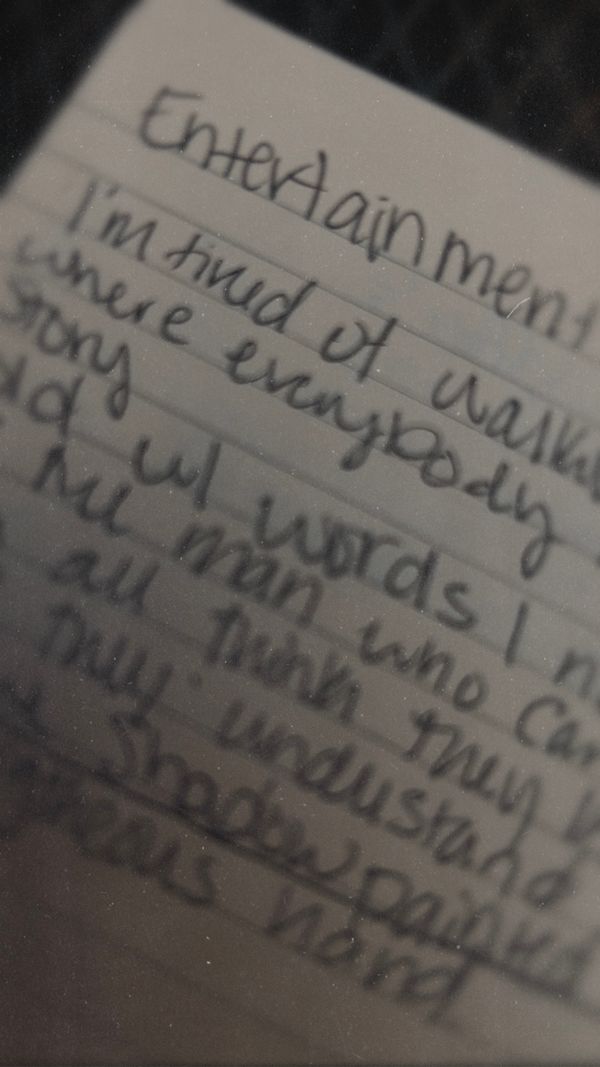 Entertainment
I'm tired of walki
where everybody
story
w/ words I n
the man who can
all think they
they understand
shadow painted
hand